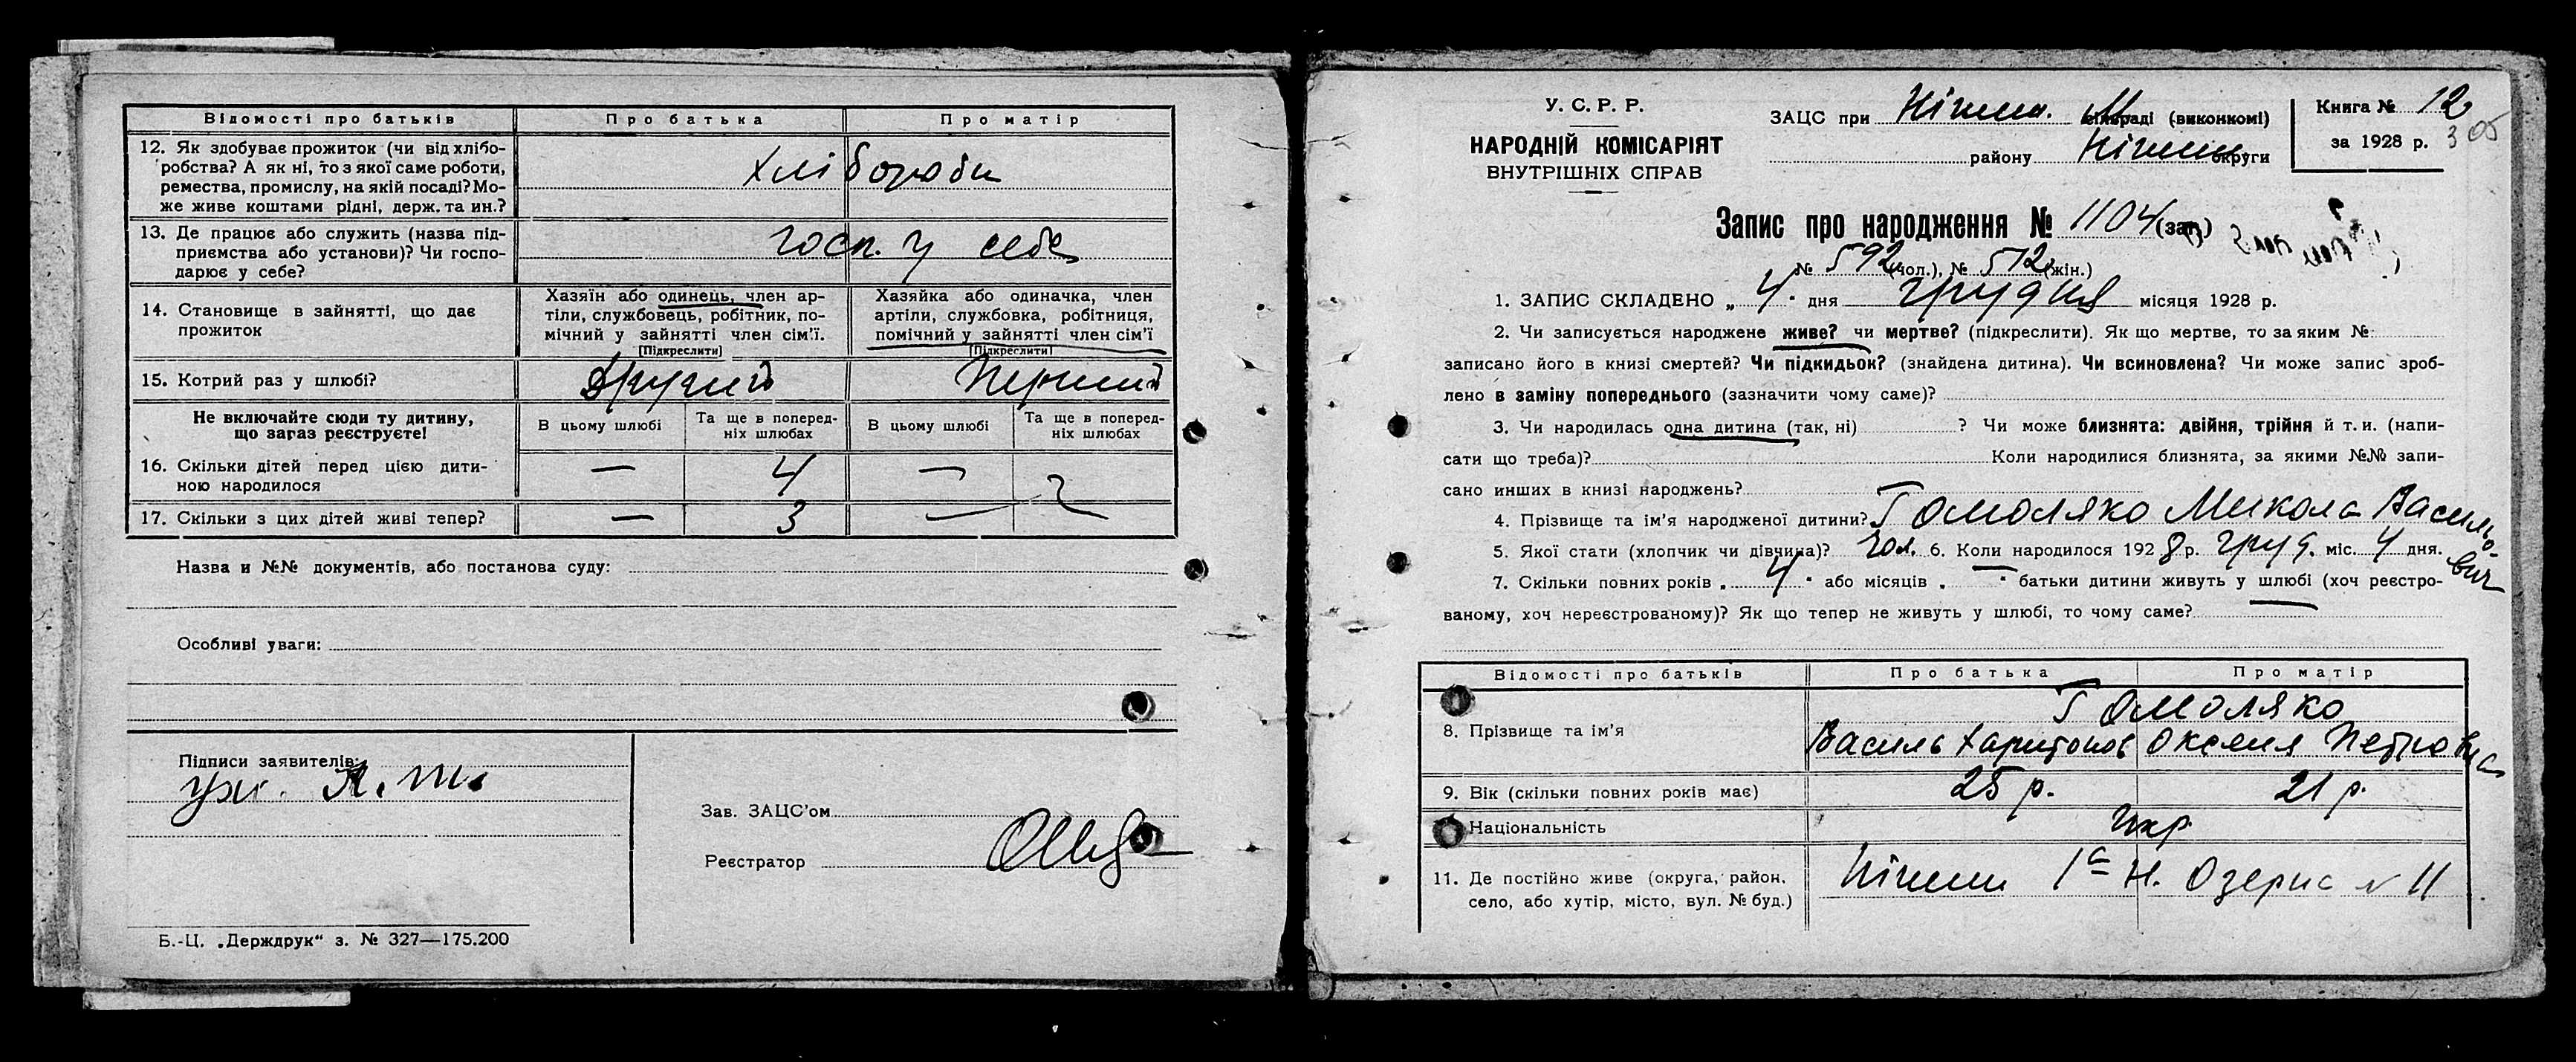 Відомості про батьків Про батька Про матір
12. Як здобуває прожиток (чи від хлібо-
робства? А як ні, то з якої саме роботи,
ремества, промислу, на якій посаді? Мо-
же живе коштами рідні, держ. та ин.?
хлібороби
13. Де працює або служить (назва під-
приємства або установи)? Чи госпо-
дарює у себе?
госп. у себе
14. Становище в зайнятті, що дає
прожиток
Хазяїн або одинець, член ар-
тіли, службовець, робітник, по-
мічний у зайнятті член сім'ї.
[Підкреслити]
Хазяйка або одиначка, член
артіли, службовка, робітниця,
помічний у зайнятті член сім'ї
[Підкреслити]
15. Котрий раз у шлюбі? другий Перший
Не включайте сюди ту дитину,
що зараз реєструєте!
В цьому шлюбі
Та ще в поперед-
ніх шлюбах
В цьому шлюбі
Та ще в поперед-
ніх шлюбах
16. Скільки дітей перед цією дити-
ною народилося
— 4 —
17. Скільки з цих дітей живі тепер? — 3 —
Назва и №№ документів, або постанова суду:
Особливі уваги:
Підписи заявителів:
Зав. ЗАЦС'ом
Реєстратор
Б.-Ц. „Держдрук“ з. № 327—175.200
У. С. Р. Р.
НАРОДНІЙ КОМІСАРІЯТ
ВНУТРІШНІХ СПРАВ
ЗАЦС при Ніжин. М сільраді (виконкомі)
району Ніжин округи
Книга № 12
за 1928 р. 305
Запис про народження № 1104 (заг)
№ 592 (чол.), № 512 (жін.)
1. ЗАПИС СКЛАДЕНО „ 4 " дня грудня місяця 1928 р.
2. Чи записується народжене живе? чи мертве? (підкреслити). Як що мертве, то за яким №
записано його в книзі смертей? Чи підкидьок? (знайдена дитина). Чи всиновлена? Чи може запис зроб-
лено в заміну попереднього (зазначити чому саме)?
3. Чи народилась одна дитина (так, ні) ? Чи може близнята: двійня, трійня й т. и. (напи-
сати що треба)? Коли народилися близнята, за якими №№ запи-
сано инших в книзі народжень?
4. Прізвище та ім'я народженої дитини? Гомоляко Микола Васильо-
вич
5. Якої стати (хлопчик чи дівчина)? чол. 6. Коли народилося 1928 р. груд. міс. 4 дня.
7. Скільки повних років „ 4 " або місяців „ — " батьки дитини живуть у шлюбі (хоч реєстро-
ваному, хоч нереєстрованому)? Як що тепер не живуть у шлюбі, то чому саме?
Відомості про батьків Про батька Про матір
8. Прізвище та ім'я
Гомоляко
Василь Харитонов Оксеня Петровна
9. Вік (скільки повних років має) 25 р. 21 р.
Національність Укр.
11. Де постійно живе (округа, район,
село, або хутір, місто, вул. № буд.)
Ніжин 1а Н. Озерна № 11